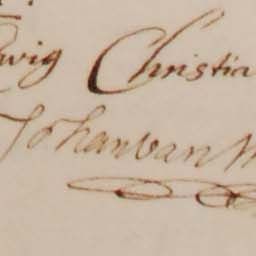 wig Christia
Johan van M